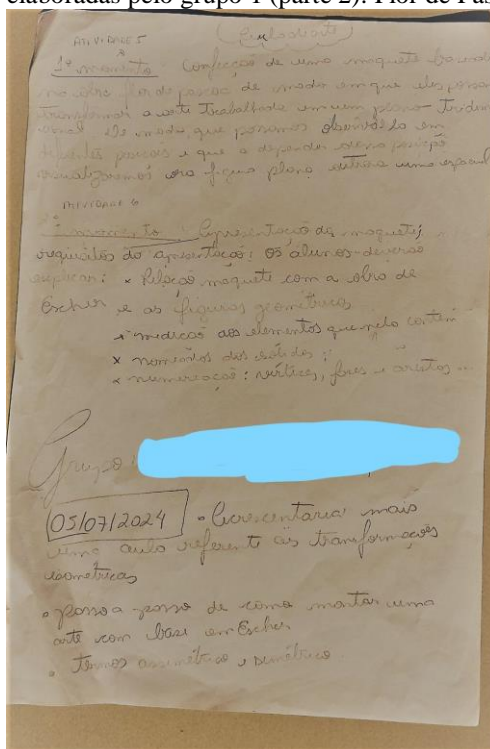 elaboradas pelo grupo 1 (parte 2): Flor de Pas
ATIVIDADE 5
1º momento Confecção de uma maquete
na obra flor de pascoa de modo em que eles possam
transformar a arte trabalhada em um plano tridim
de modo que possamos observá-la em
diferentes e que a depender dessa posição
visualizaremos ora figura plana outrora uma espacial
ATIVIDADE 6
momento: Apresentação da maquete;
requisitos da apresentação: os alunos deverão
explicar: x Relação maquete com a obra de
Escher e as figuras geométricas
medição dos elementos que nela contém
x dos sólidos;
x numeração: vértices, faces e arestas ...
Grupo:
05/07/2024 • Acrescentaria mais
uma aula referente às transformações
isométricas
• passo a passo de como montar uma
arte com base em Escher
• Termos assimétrico e simétrico